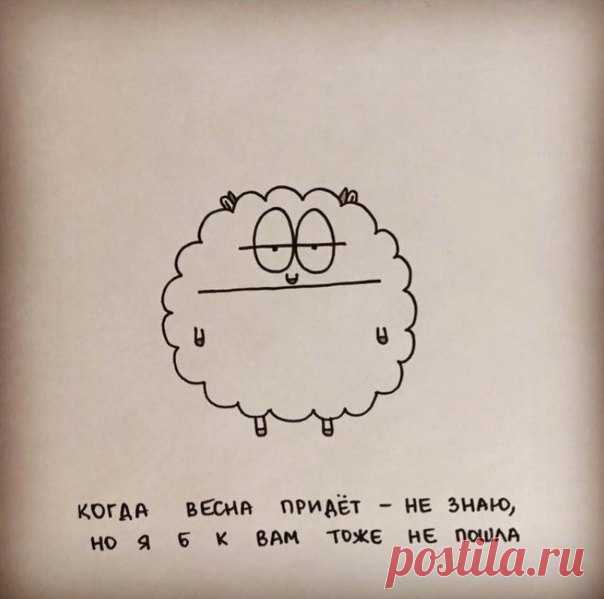 КОГДА ВЕСНА ПРИДЁТ – НЕ ЗНАЮ,
НО Я Б К ВАМ ТОЖЕ НЕ ПОШЛА
postila.ru